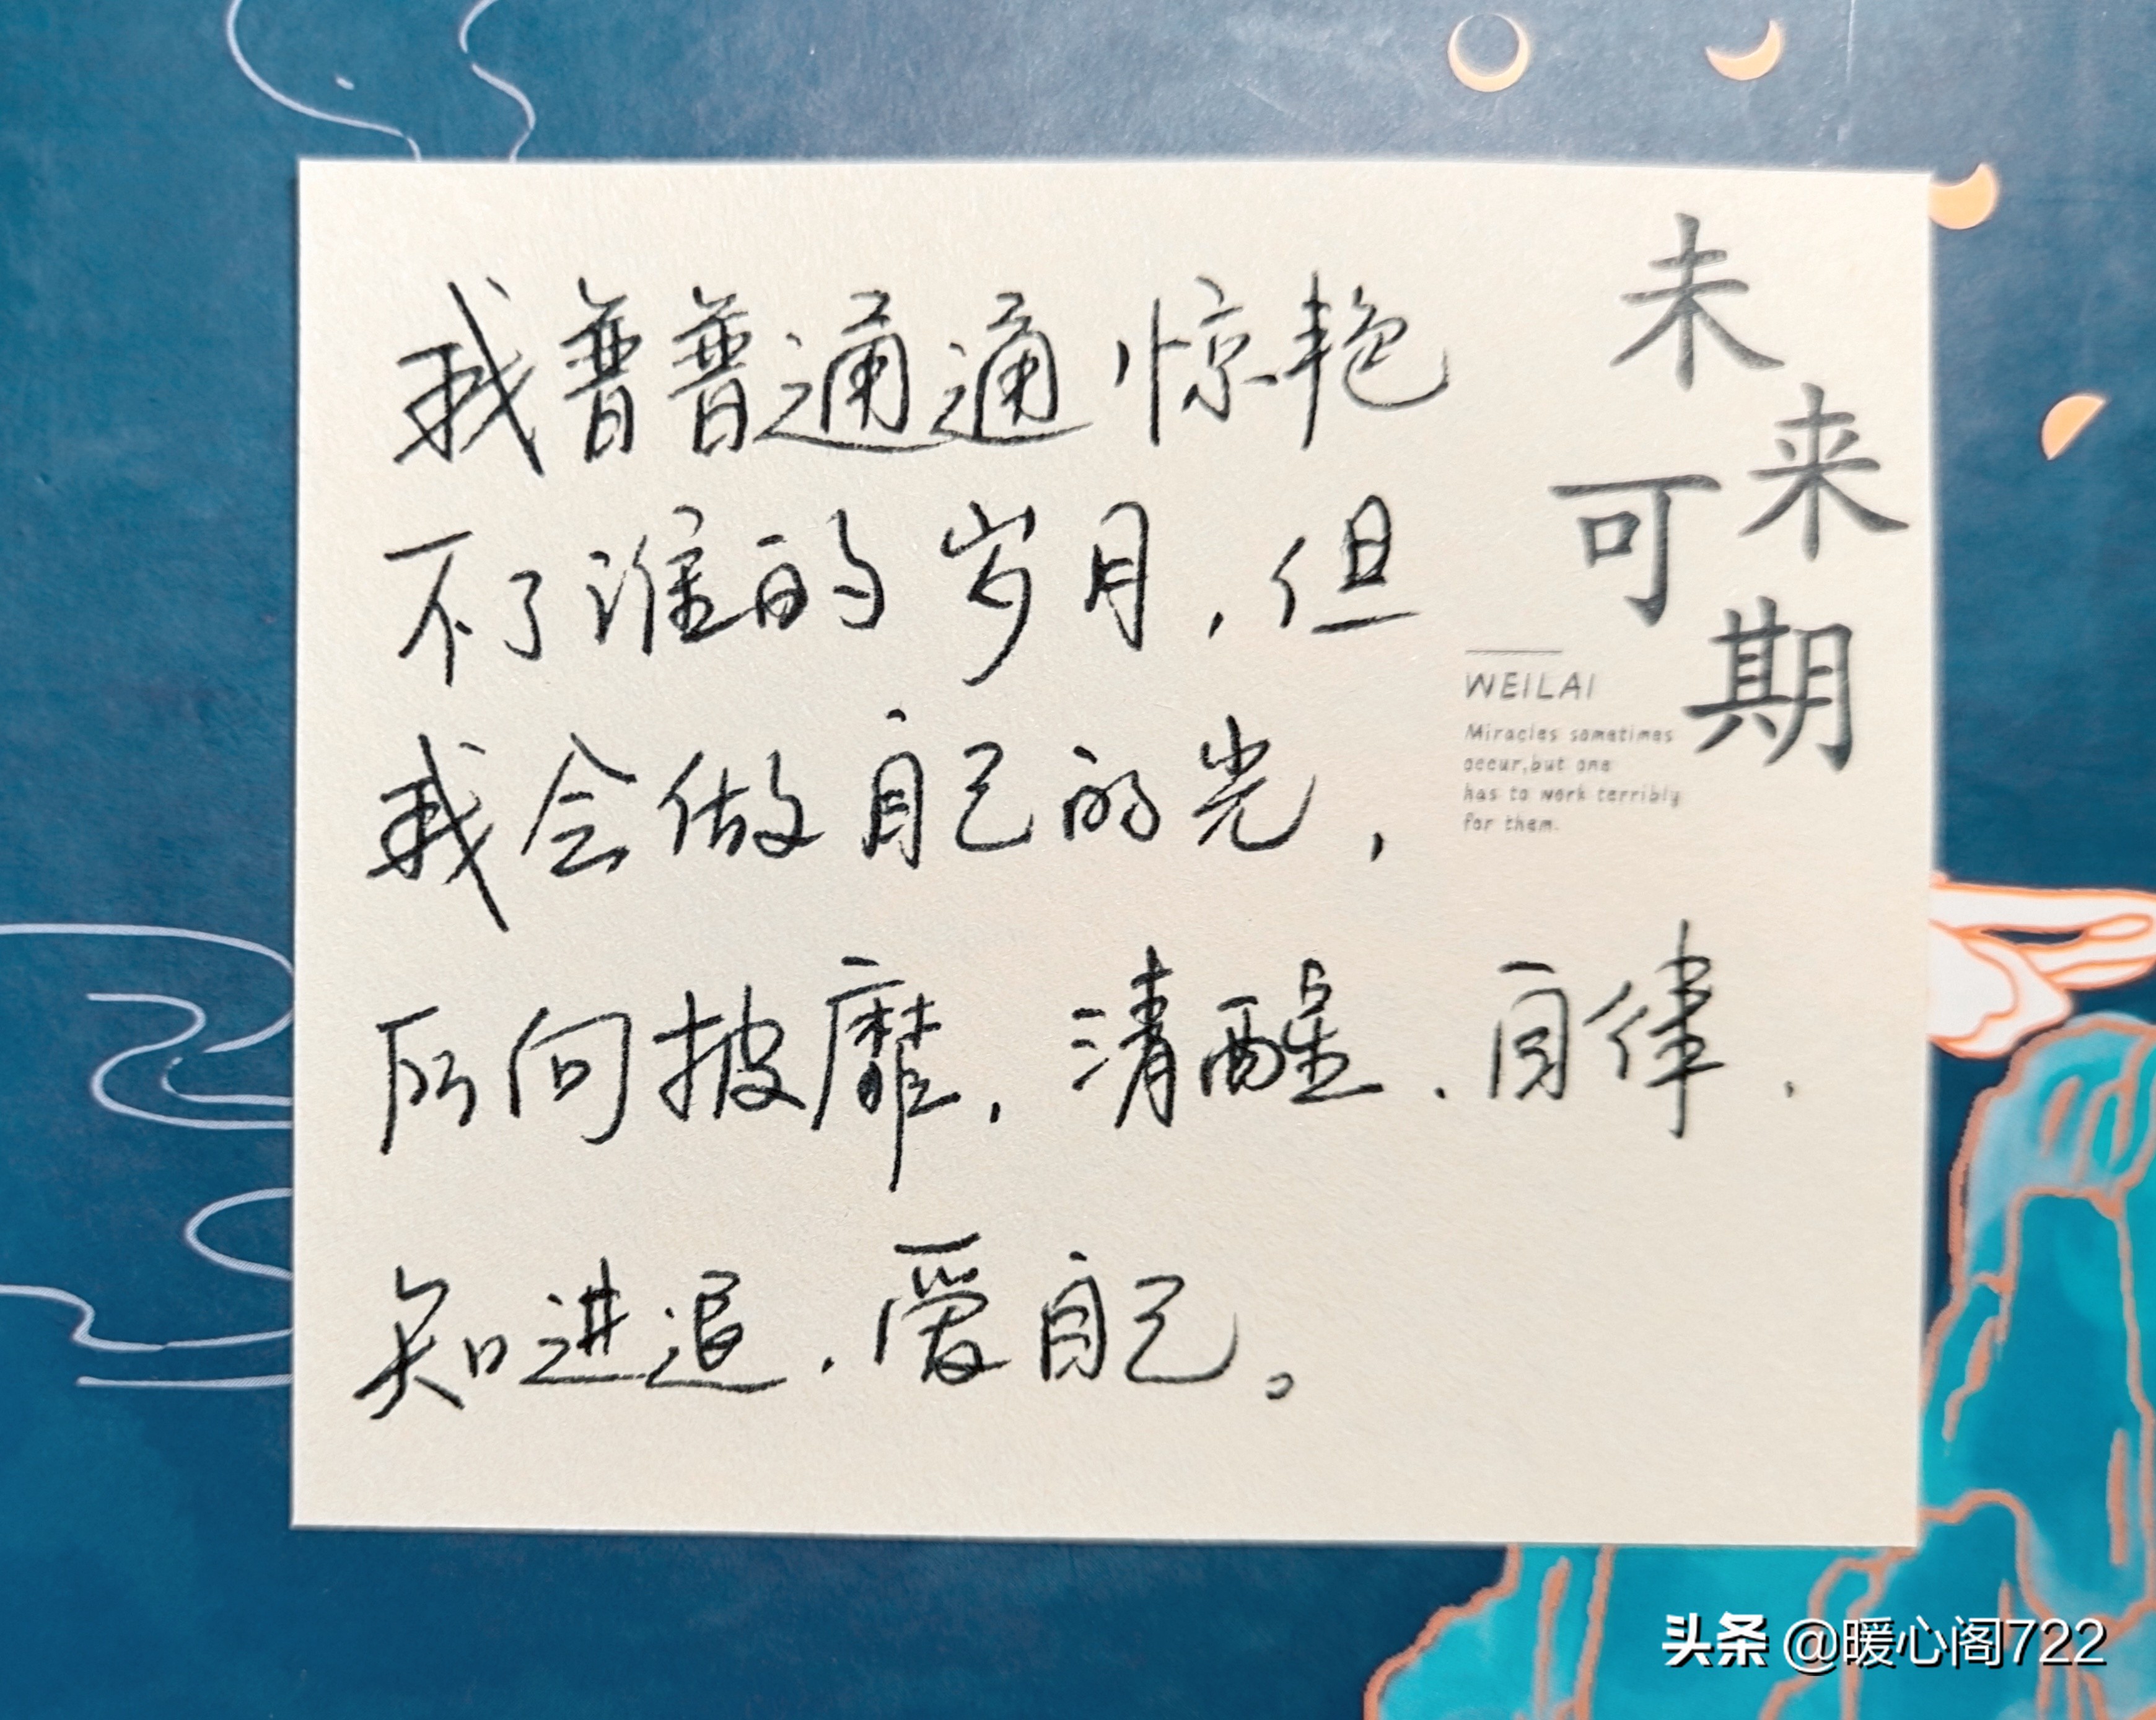 我普普通通惊艳
不了谁的岁月，但
我会做自己的光，
所向披靡，清醒、自律、
知进退、爱自己。
未来可期
WEILAI
Miracles sometimes
occur,but one
has to work terribly
for them.
头条 @暖心阁722